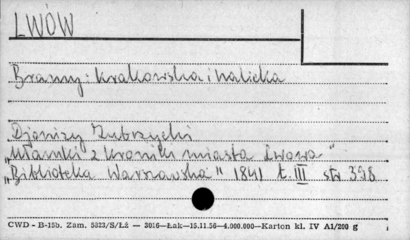 LWÓW
Bramy: krakowska i halicka
Djonizy Zubrzycki
„Ułamki z kroniki miasta Lwowa"
„Biblioteka Warszawska" 1841 t. III str 398
CWD - B-15b. Zam. 5823/S/Łź — 3016—Łak—15.11.56—4.000.000—Karton kl. IV A1/200 g